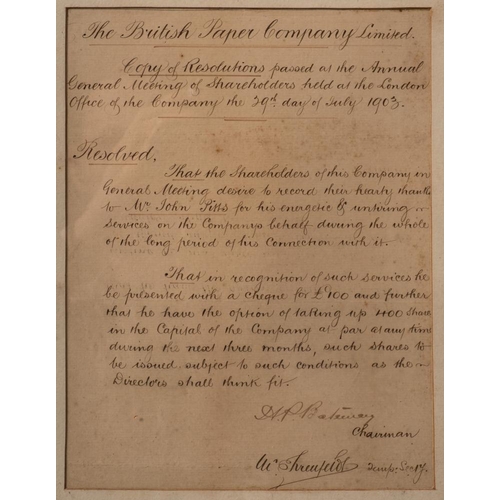 The British Paper Company Limited.
Copy of Resolutions passed at the Annual
General Meeting of Shareholders held at the London
Office of the Company the 29th day of July 1903.
Resolved,
That the Shareholders of this Company in
General Meeting desire to record their hearty thanks
to Mr John Pitts for his energetic & untiring
services on the Companys behalf during the whole
of the long period of his Connection with it.
That in recognition of such services he
be presented with a cheque for £100 and further
that he have the option of taking up 400 Share
in the Capital of the Company at par at any time
during the next three months, such shares to
be issued subject to such conditions as the
Directors shall think fit.
H.P. Bateman
Chairman
Temp: Secy.